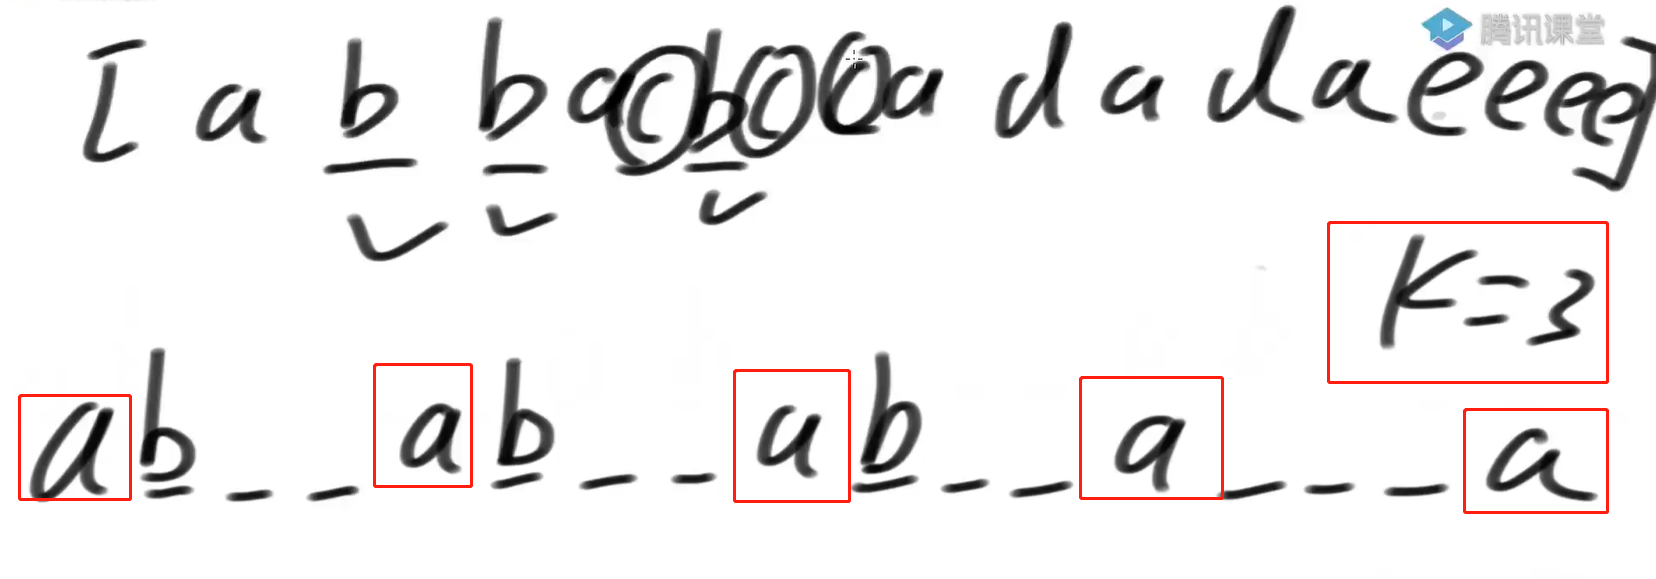 腾讯课堂
[ a b b a c b c c a d a d a e e e e ]
K=3
a b _ _ a b _ _ a b _ _ a _ _ _ a